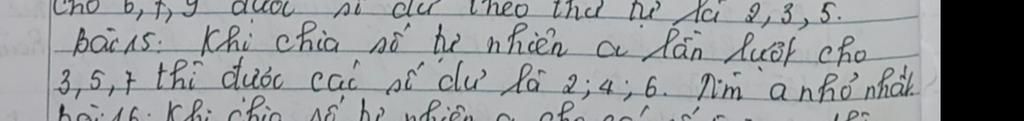 cho 6, 7, 9 được số dư theo thứ tự là 2, 3, 5.
bài 15: Khi chia số tự nhiên a lần lượt cho
3, 5, 7 thì được các số dư là 2; 4; 6. Tìm a nhỏ nhất.
bài 16: Khi chia số tự nhiên a cho